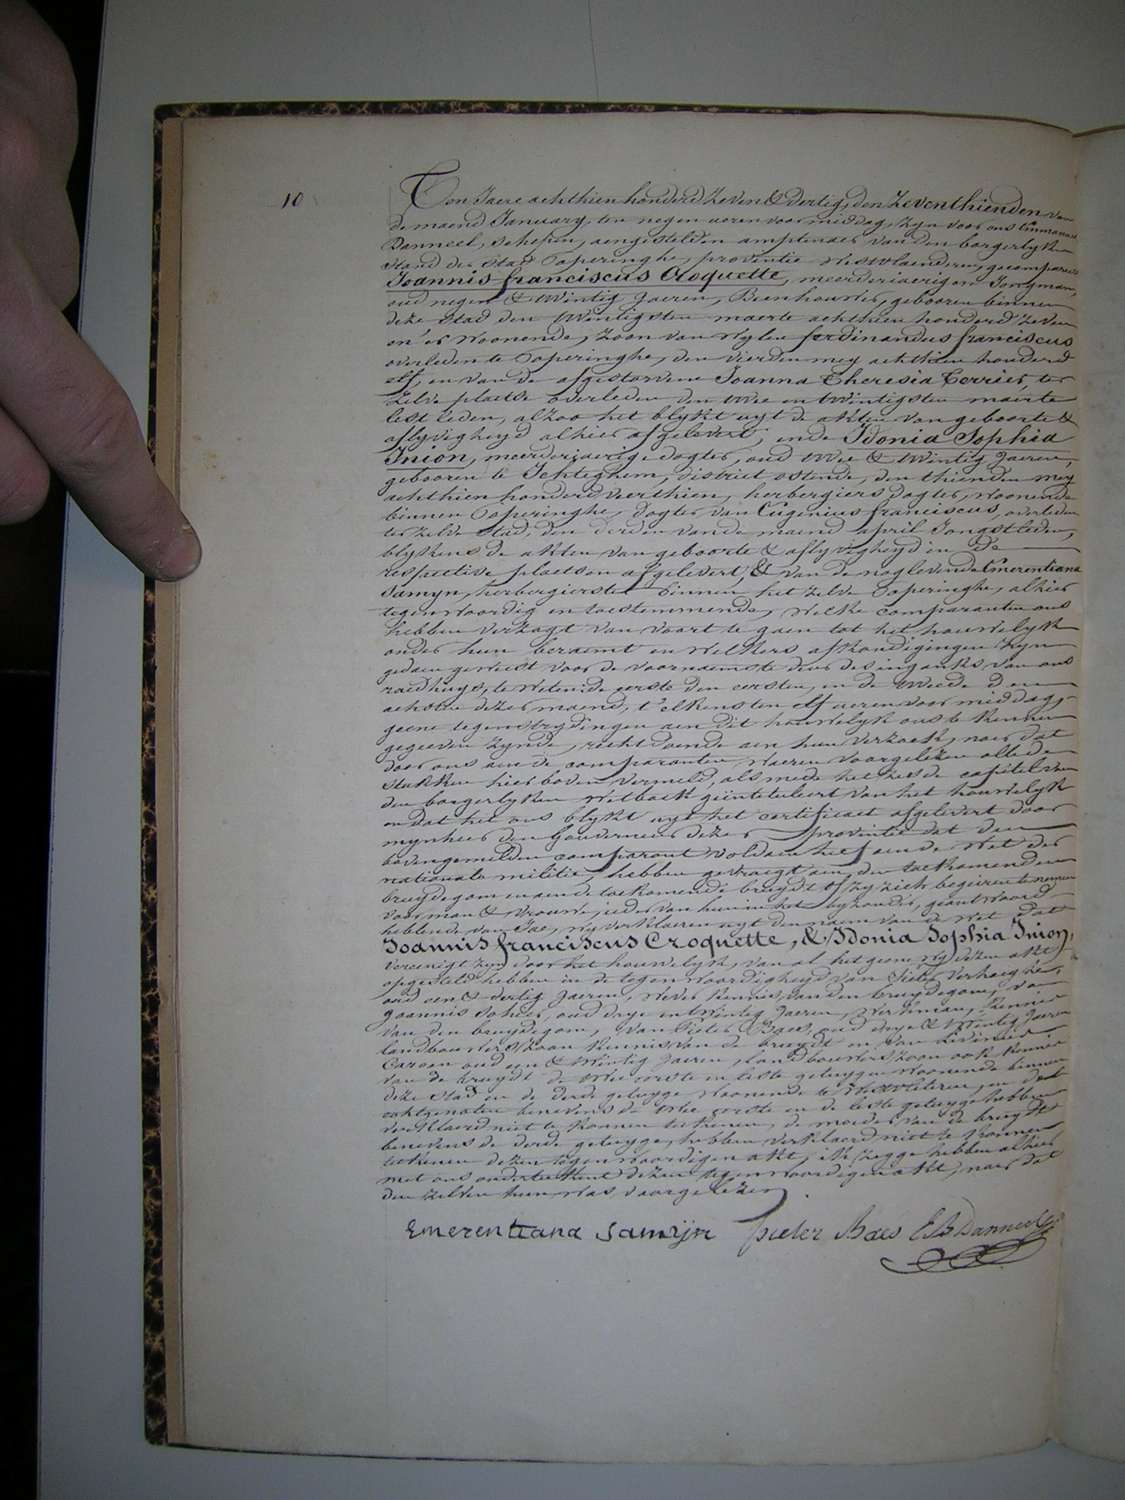 10
Ten Jaere achthien honderd zeven & dertig, den zeventhienden van
de maend January, ten negen ueren voor middag, zyn voor ons
Danneel, schepen, aengestelden amptenaer van den borgerlyken
stand der stad Poperinghe, provintie Westvlaenderen, gecompareert
Joannis franciscus Cloquette, meerderjaerigen Jongman,
oud negen & twintig Jaeren, Beenhouwer, gebooren binnen
deze stad den twintigsten maerte achthien honderd zeven
en er woonende, zoon van wylen ferdinandus franciscus
overleden te Poperinghe, den vierden mey achthien honderd
elf, en van de afgestorvene Joanna Theresia Terrier, ter
zelve plaetse overleden den twee en twintigsten maerte
lest leden, alzoo het blykt uyt de akten van geboorte &
aflyvigheyd alhier afgelevert, ende Idonia Sophia
Inion, meerderjaerige dogter, oud twee & twintig Jaeren,
gebooren te Ichteghem, district ostende, den thienden mey
achthien honderd vierthien, herbergiers dogter, woonende
binnen Poperinghe, dogter van Eugenius franciscus, overleden
ter zelve stad, den derden van de maend april Jongstleden,
blykens de akten van geboorte & aflyvigheyd in de
respective plaetsen afgelevert, & van de noglevende Emerentiana
Samyn, herbergierster binnen het zelve Poperinghe, alhier
tegenwoordig en toestemmende, welke comparanten ons
hebben verzogt van voort te gaen tot het houwelyk
onder hun beraemt en welkers afkondigingen zyn
gedaen geweest voor de voornaemste deur des ingangs van ons
raedhuys, te weten de eerste den eersten, en de tweede den
achsten dezer maend, t'elkensten elf ueren voor middag,
geene tegenstrydingen aen dit houwelyk ons te kennen
gegeeven zynde, recht doende aen hun verzoek, naer dat
door ons aen de comparanten waeren voorgelezen alle de
stukken hier boven vermeld, als mede het zesde capittel van
den borgerlyken wetboek geïntituleert van het houwelyk
en dat het ons blykt uyt het certificaet afgelevert door
mynheer den Gouverneur dezer provintie dat den
bovengemelden comparant voldaen heeft aen de wet der
nationale militie, hebben gevraegt aen den toekomenden
bruydegom en aen de toekomende bruydt of zy zich begeeren te nemen
voor man & vrouwe, ieder van hun in het byzonder, geantwoord
hebbende van Jae, wy verklaeren uyt den naem van de wet dat
Joannis franciscus Croquette, & Idonia Sophia Inion,
vereenigt zyn door het houwelyk, van al het geene wy dezen akt
opgesteld hebben in de tegenwoordigheyd van Pieter Verhaeghe,
oud een & dertig Jaeren, wever kennis van den bruydegom, van
Joannis oud drye en twintig Jaeren, werkman, kennis
van den bruydegom, van Pieter Baes, oud drye & twintig Jaeren
landbouwers zoon kennis van de bruydt en van Livinus
oud een & twintig Jaeren, landbouwers zoon ook kennis
van de bruydt de twee eerste en leste getuygen woonende binnen
deze stad en de derde getuyge woonende te en de
echtgenoten benevens de twee eerste en de leste getuyge hebben
verklaerd niet te konnen teekenen, de moeder van de bruydt
benevens de derde getuyge, hebben verklaerd niet te konnen
teekenen dezen tegenwoordigen akt, ik zegge hebben alhier
met ons onderteekent dezen tegenwoordigen akt, naer dat
den zelven hun was voorgelezen.
Emerentiana Samijn Pieter Baes E. B. Danneel